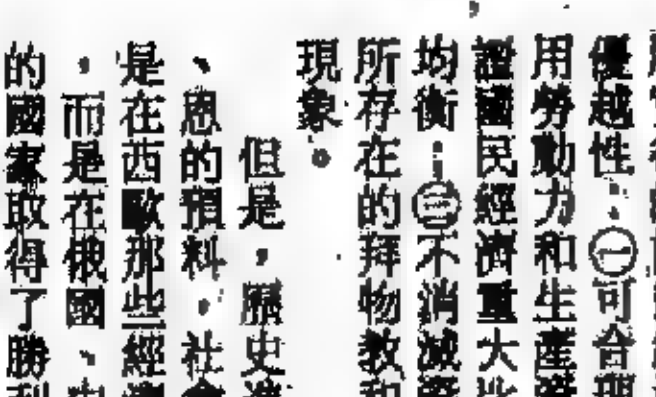 優越性：㊀可合理
用勞動力和生產資
證國民經濟重大比
均衡；㊂不消滅資
所存在的拜物教和
現象。
但是，歷史進
、恩的預料，社會
是在西歐那些經濟
，而是在俄國、中
的國家取得了勝利